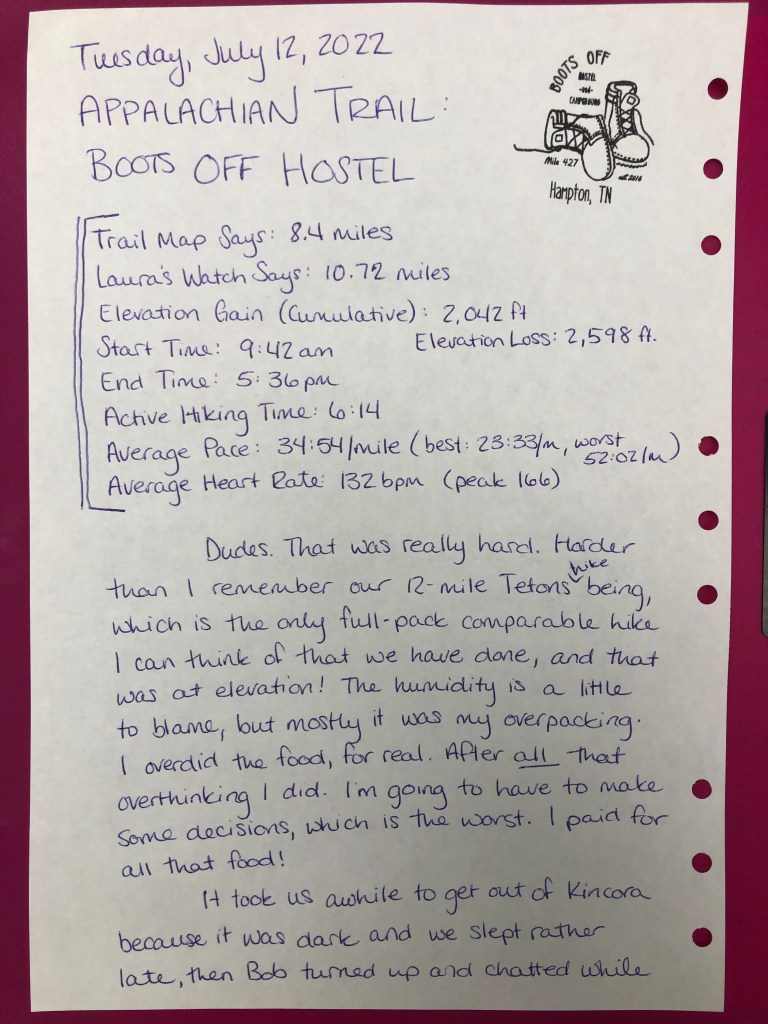 Tuesday, July 12, 2022
APPALACHIAN TRAIL:
BOOTS OFF HOSTEL
BOOTS OFF
HOSTEL
-and-
CAMPGROUND
Mile 427
est. 2016
Hampton, TN
Trail Map Says: 8.4 miles
Laura's Watch Says: 10.72 miles
Elevation Gain (Cumulative): 2,042 ft
Start Time: 9:42 am Elevation Loss: 2,598 ft.
End Time: 5:36pm
Active Hiking Time: 6:14
Average Pace: 34:54/mile (best: 23:33/m, worst 52:02/m)
Average Heart Rate: 132 bpm (peak 166)
Dudes. That was really hard. Harder
than I remember our 12-mile Tetons hike being,
which is the only full-pack comparable hike
I can think of that we have done, and that
was at elevation! The humidity is a little
to blame, but mostly it was my overpacking.
I overdid the food, for real. After all that
overthinking I did. I'm going to have to make
some decisions, which is the worst. I paid for
all that food!
It took us awhile to get out of Kincora
because it was dark and we slept rather
late, then Bob turned up and chatted while